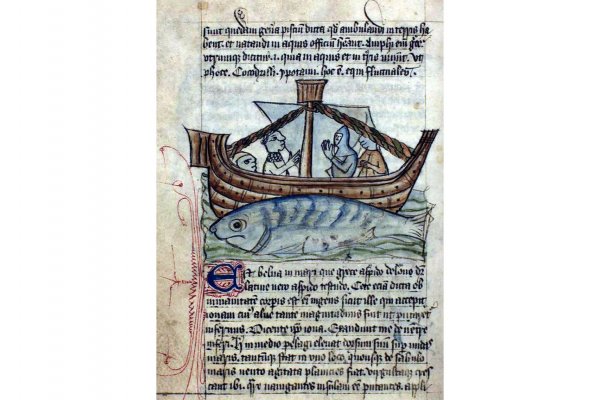 sunt quedam gen̄a pisciū dicta qđ ambulandi in terris ha
bent. et natandi in aquis officiū hēant. Amphi em̄
dicitur .i. quia in aquis et in t̄ris uiuūt. ut
phoce. Cocodrilli. ypotami. hoc ē. equi fluctuales.
Est belua in mari que grece aspido delone dr̄
latine uero aspido testudo. Cete etiā dicta ob
inmanitatē corꝑis est em̄ ingens sicut ille qui accepit
ionam cuiꝰ aluꝰ tante magnitudinis fuit ut putaret̉
infernus. Dicente ip̄o iona. Exaudiuit me de uentre
inferi. in medio pelagi eleuat dorsum suū sup̄ undas
maris. tantūque stat in uno loco. quousque de sabulo
maris uento agitata planicies fiat. cres
cant ibi. nauigantes insulam eē putantes. appli